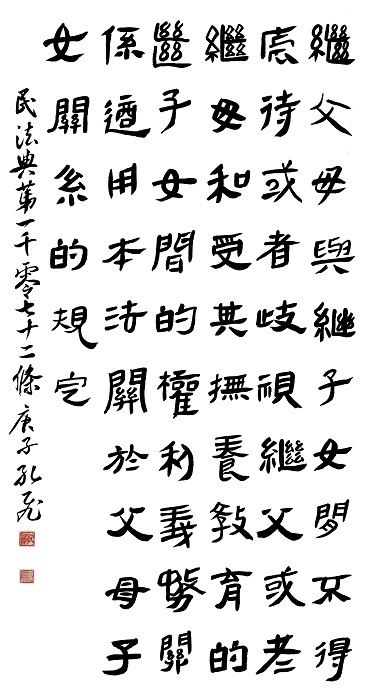 繼父母與継子女間不得
虐待或者歧視繼父或者
繼母和受其撫養教育的
繼子女間的權利義務關
係適用本法關於父母子
女關系的規定
民法典第一千零七十二條庚子孔